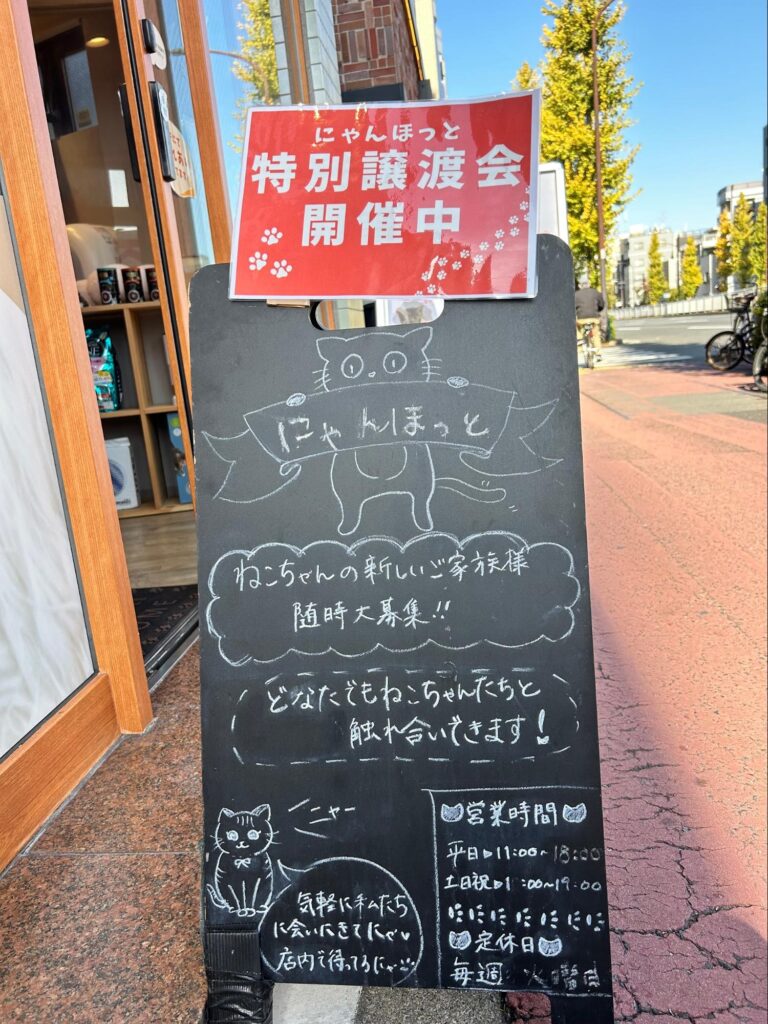 にゃんほっと
特別譲渡会
開催中
にゃんほっと
ねこちゃんの新しいご家族様
随時大募集!!
どなたでもねこちゃんたちと
触れ合いできます!
ニャー
気軽に私たち
に会いにきてにゃ♥
店内で待ってるにゃ
営業時間
平日▷11:00~18:00
土日祝▷1:00~19:00
定休日
毎週 火曜日